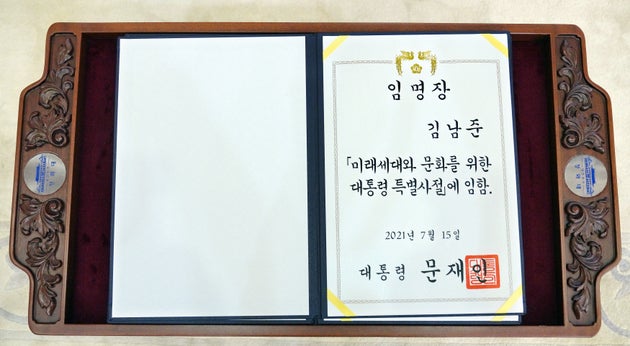 임명장
김남준
「미래세대와 문화를 위한
대통령 특별사절」에 임함.
2021년 7월 15일
대통령 문재인